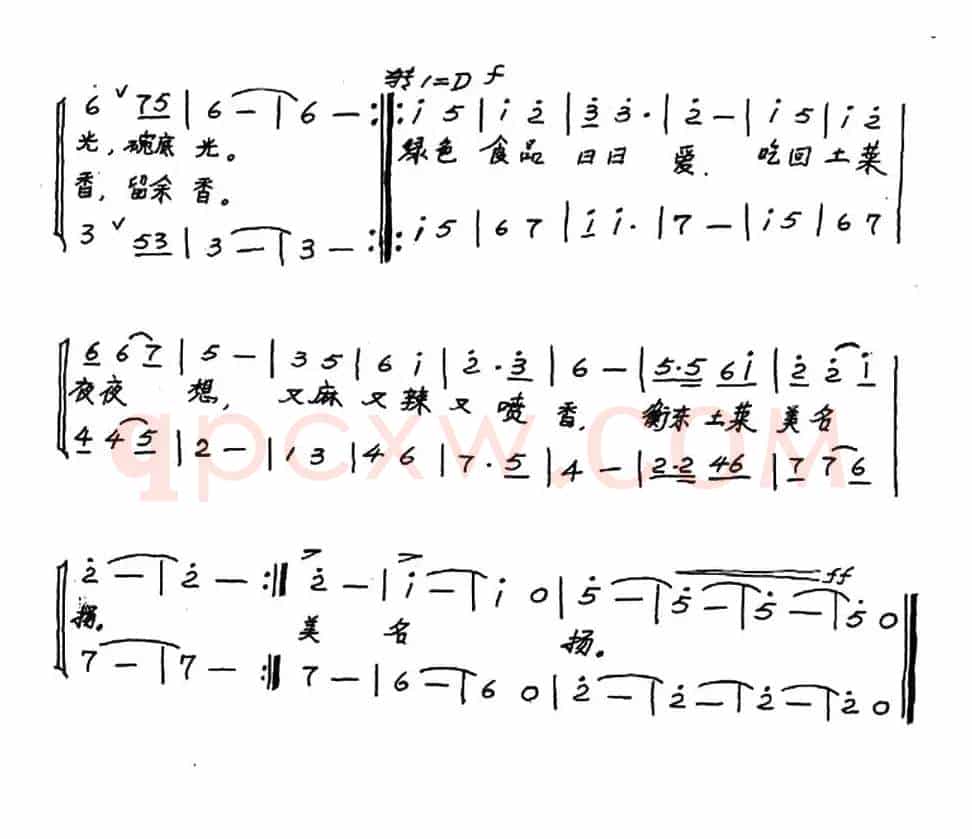 转1=D f
6̇ ∨ 75 | 6 — | 6 — :‖: i 5 | i 2̇ | 3̇ 3̇· | 2̇ — | i 5 | i 2̇ |
光,碗底 光。 绿色 食品 日日 爱. 吃回 土菜
香,留余 香。
3 ∨ 53 | 3 — | 3 — :‖: i 5 | 6 7 | i i· | 7 — | i 5 | 6 7 |
6 6 7 | 5 — | 3 5 | 6 i | 2̇·3̇ | 6 — | 5·5 6i | 2̇ 2̇ i |
夜夜 想, 又麻 又辣 又 喷 香, 衡东 土菜 美名
4 4 5 | 2 — | 1 3 | 4 6 | 7·5 | 4 — | 2·2 46 | 7 7 6 |
qpcxw.COM
> > ff
2̇ — | 2̇ — :‖ 2̇ — | i — | i 0 | 5̇ — | 5̇ — | 5̇ — | 5̇ 0 ‖
扬。 美 名 扬。
7 — | 7 — :‖ 7 — | 6 — | 6 0 | 2̇ — | 2̇ — | 2̇ — | 2̇ 0 ‖